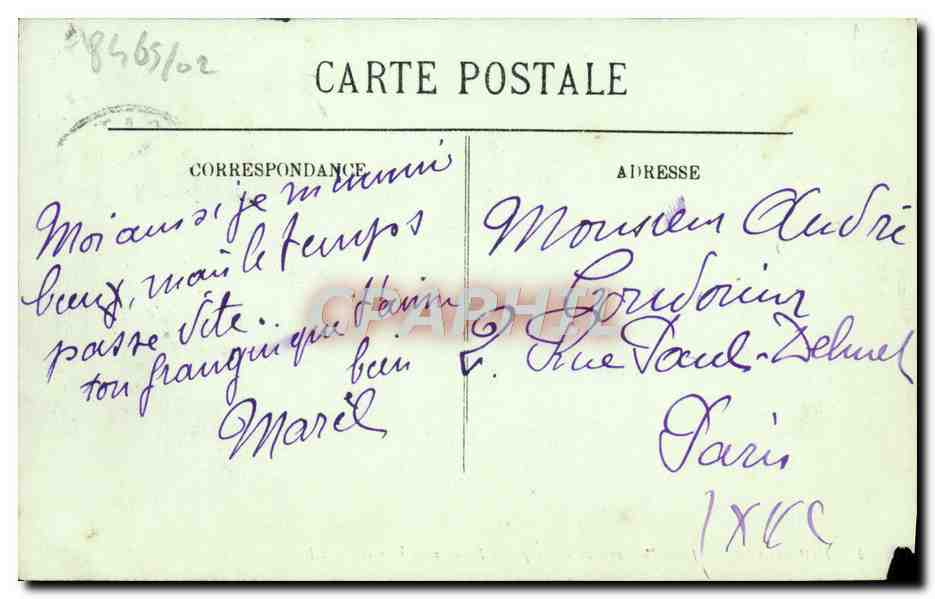 18465/02
CARTE POSTALE
CORRESPONDANCE
ADRESSE
Moi aussi je m'ennui
bien, mais le temps
passe vite..
ton frangin que t'aime
bien
Marcel
Monsieur André
2. Rue Paul-Delmet
Paris
CPAPHIL